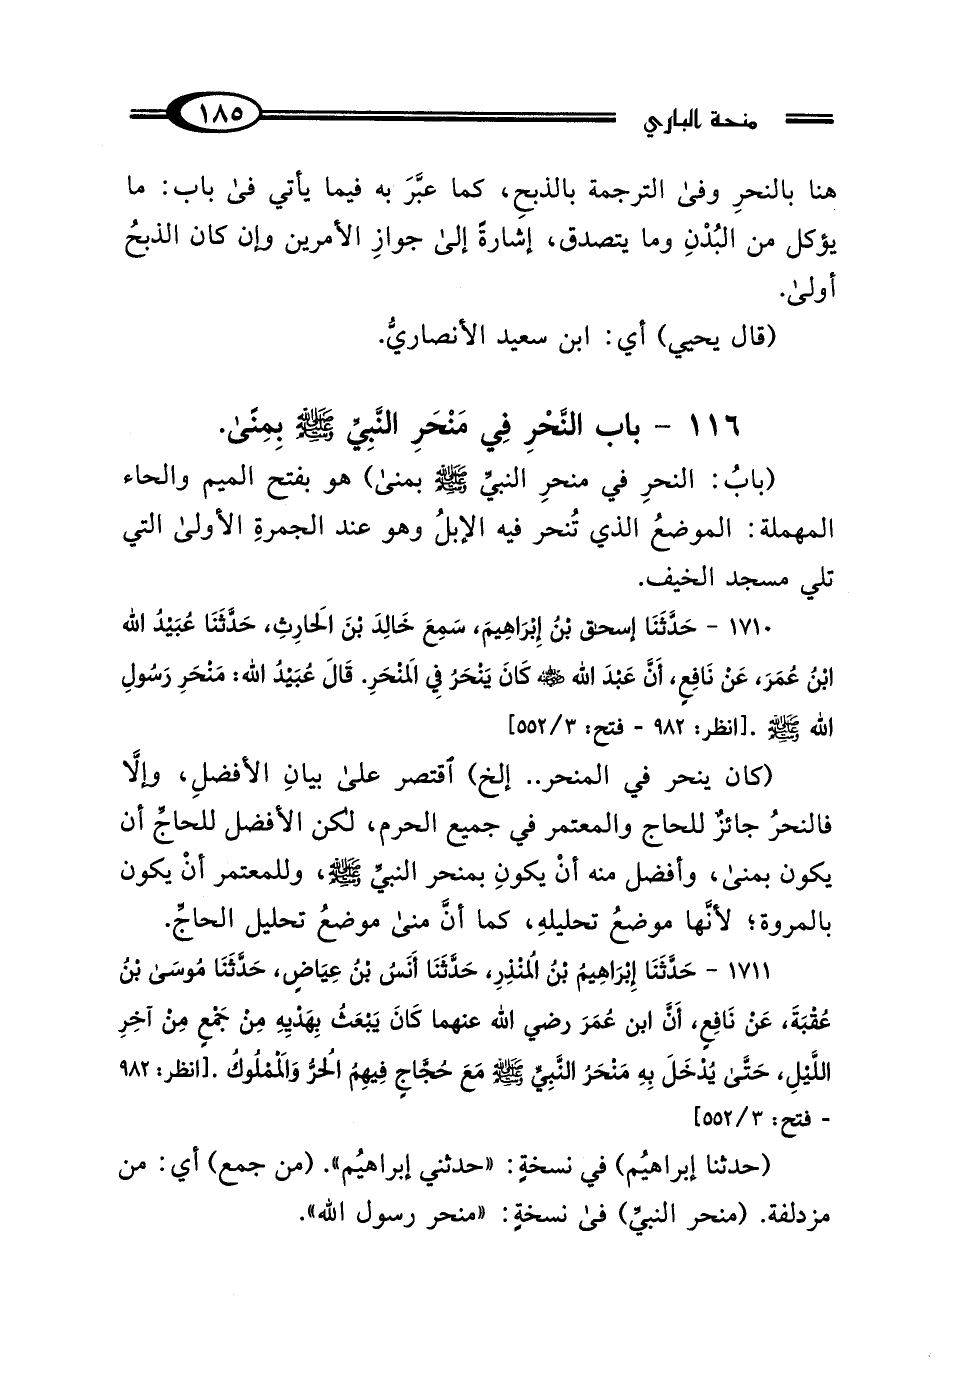 منحة الباري ١٨٥
هنا بالنحرِ وفىٰ الترجمة بالذبحِ، كما عبَّرَ به فيما يأتي فىٰ باب: ما
يؤكل من البُدْنِ وما يتصدق، إشارةً إلىٰ جوازِ الأمرين وإن كان الذبحُ
أولىٰ.
(قال يحيي) أي: ابن سعيد الأنصاريُّ.
١١٦ - باب النَّحْرِ فِي مَنْحَرِ النَّبِيِّ ﷺ بِمِنًىٰ.
(بابُ: النحرِ في منحرِ النبيِّ ﷺ بمنىٰ) هو بفتح الميم والحاء
المهملة: الموضعُ الذي تُنحر فيه الإبلُ وهو عند الجمرةِ الأولىٰ التي
تلي مسجد الخيف.
١٧١٠ - حَدَّثَنَا إسحٰق بْنُ إِبْرَاهِيمَ، سَمِعَ خَالِدَ بْنَ الَحارِثِ، حَدَّثَنَا عُبَيْدُ الله
ابْنُ عُمَرَ، عَنْ نَافِعٍ، أَنَّ عَبْدَ الله ﷺ كَانَ يَنْحَرُ فِي الَمنْحَرِ. قَالَ عُبَيْدُ الله: مَنْحَرِ رَسُولِ
الله ﷺ .[انظر: ٩٨٢ - فتح: ٣/ ٥٥٢]
(كان ينحر في المنحر.. إلخ) ٱقتصر علىٰ بيانِ الأفضلِ، وإلَّا
فالنحرُ جائزٌ للحاج والمعتمر في جميع الحرم، لكن الأفضل للحاجِّ أن
يكون بمنىٰ، وأفضل منه أنْ يكونِ بمنحر النبيِّ ﷺ، وللمعتمر أنْ يكون
بالمروة؛ لأنَّها موضعُ تحليلهِ، كما أنَّ منىٰ موضعُ تحليل الحاجِّ.
١٧١١ - حَدَّثَنَا إِبْرَاهِيمُ بْنُ الُمنْذِرِ، حَدَّثَنَا أَنَسُ بْنُ عِيَاضٍ، حَدَّثَنَا مُوسَىٰ بْنُ
عُقْبَةَ، عَنْ نَافِعٍ، أَنَّ ابن عُمَرَ رضي الله عنهما كَانَ يَبْعَثُ بِهَدْيِهِ مِنْ جَمْعٍ مِنْ آخِرِ
اللَّيْلِ، حَتَّىٰ يُدْخَلَ بِهِ مَنْحَرُ النَّبِيِّ ﷺ مَعَ حُجَّاجٍ فِيهِمُ الُحرُّ وَالَمْمْلُوكُ .[انظر: ٩٨٢
- فتح: ٣/ ٥٥٢]
(حدثنا إبراهيُم) في نسخةٍ: «حدثني إبراهيُم». (من جمع) أي: من
مزدلفة. (منحر النبيِّ) فىٰ نسخةٍ: «منحر رسول الله».